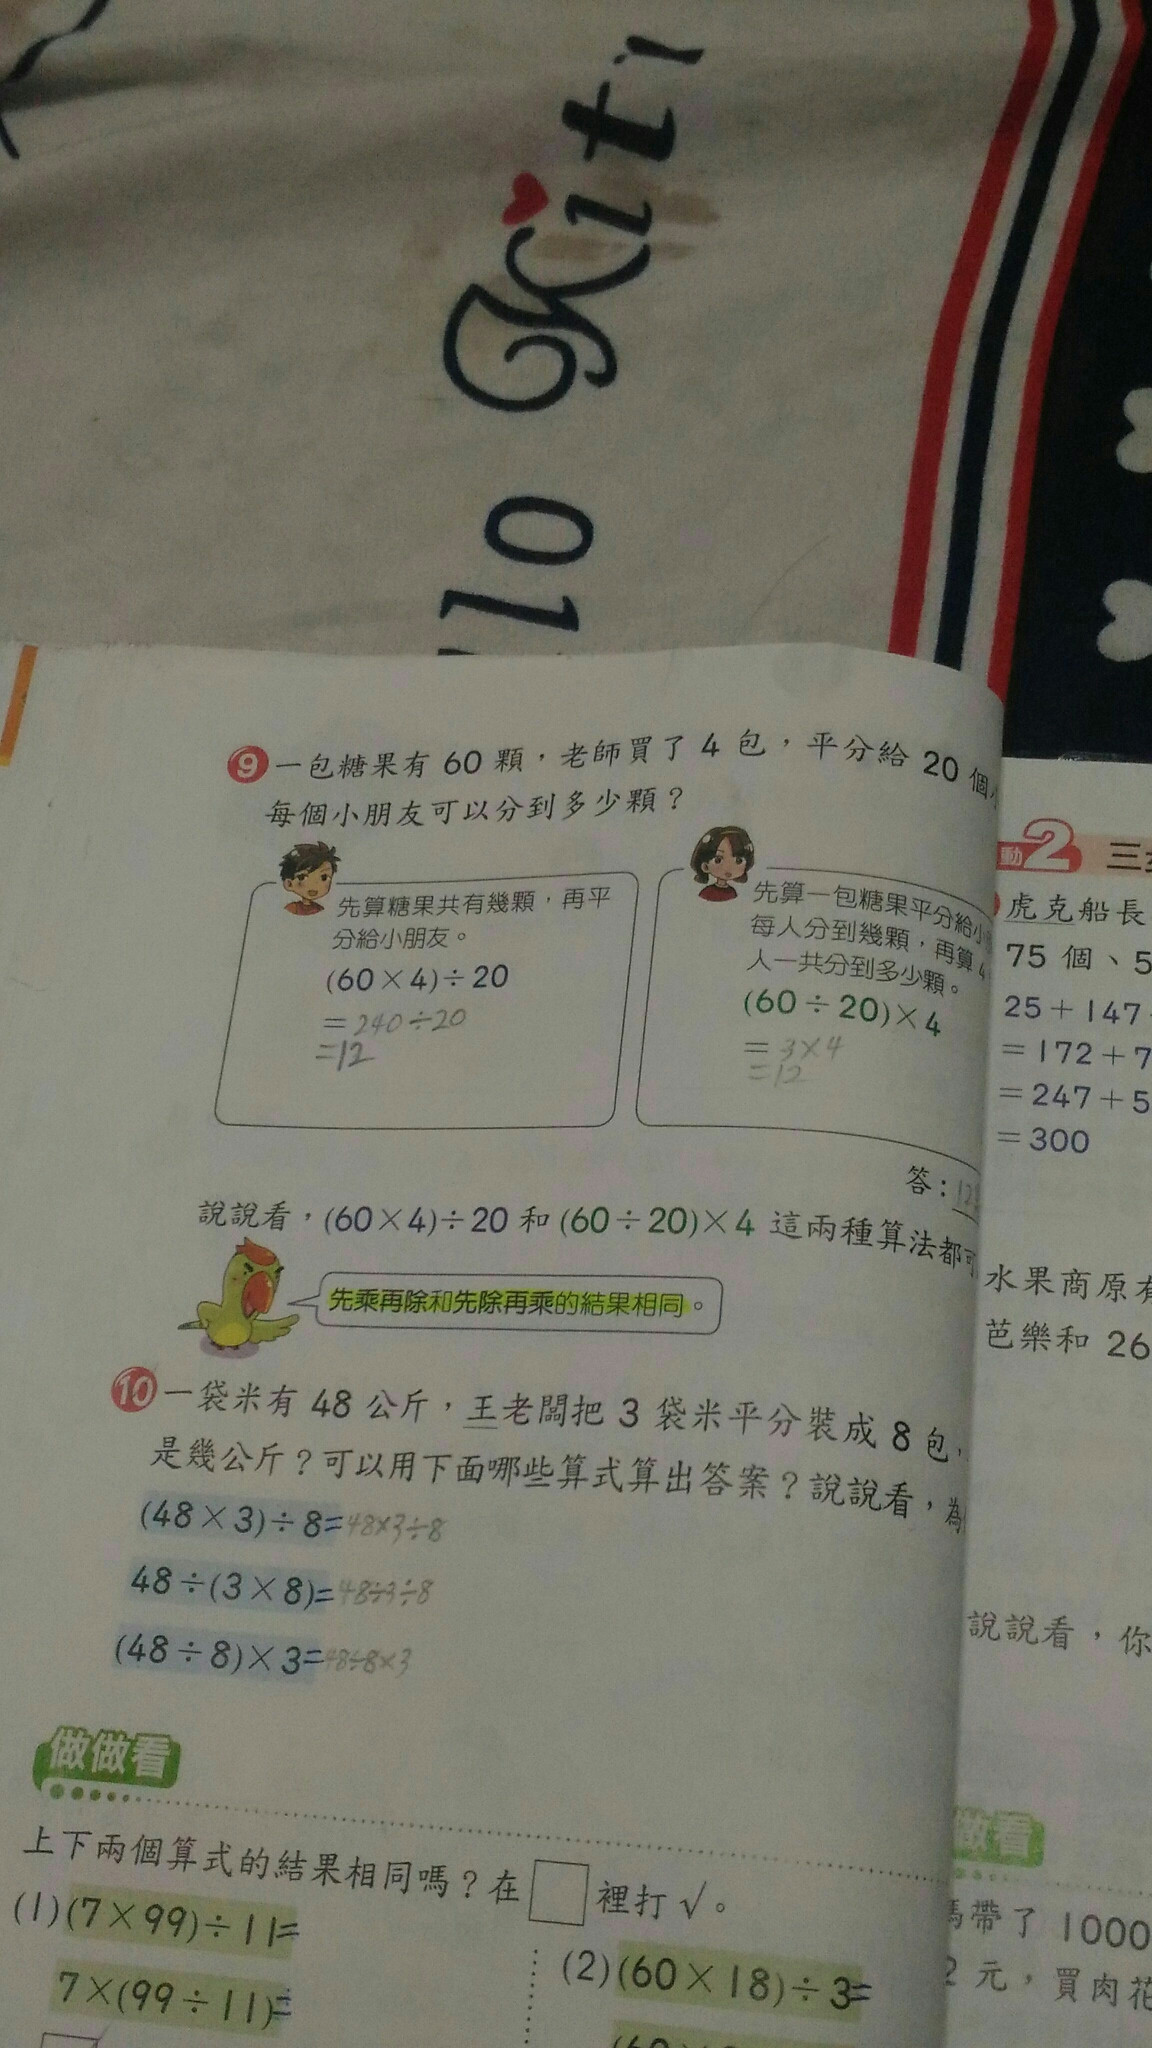 Kit
lo
9 一包糖果有 60 顆,老師買了 4 包,平分給 20 個
每個小朋友可以分到多少顆?
先算糖果共有幾顆,再平
分給小朋友。
(60×4)÷20
=240÷20
=12
先算一包糖果平分給小
每人分到幾顆,再算 4
人一共分到多少顆。
(60÷20)×4
=3×4
=12
答:12
說說看,(60×4)÷20 和 (60÷20)×4 這兩種算法都可
先乘再除和先除再乘的結果相同。
10 一袋米有 48 公斤,王老闆把 3 袋米平分裝成 8 包,
是幾公斤?可以用下面哪些算式算出答案?說說看,為
(48×3)÷8=48×3÷8
48÷(3×8)=48÷3÷8
(48÷8)×3=48÷8×3
做做看
上下兩個算式的結果相同嗎?在□裡打√。
(1)(7×99)÷11=
7×(99÷11)=
(2)(60×18)÷3=
動2 三
虎克船長
75 個、5
25+147
=172+7
=247+5
=300
水果商原有
芭樂和 26
說說看,你
做看
媽帶了 1000
2 元,買肉花